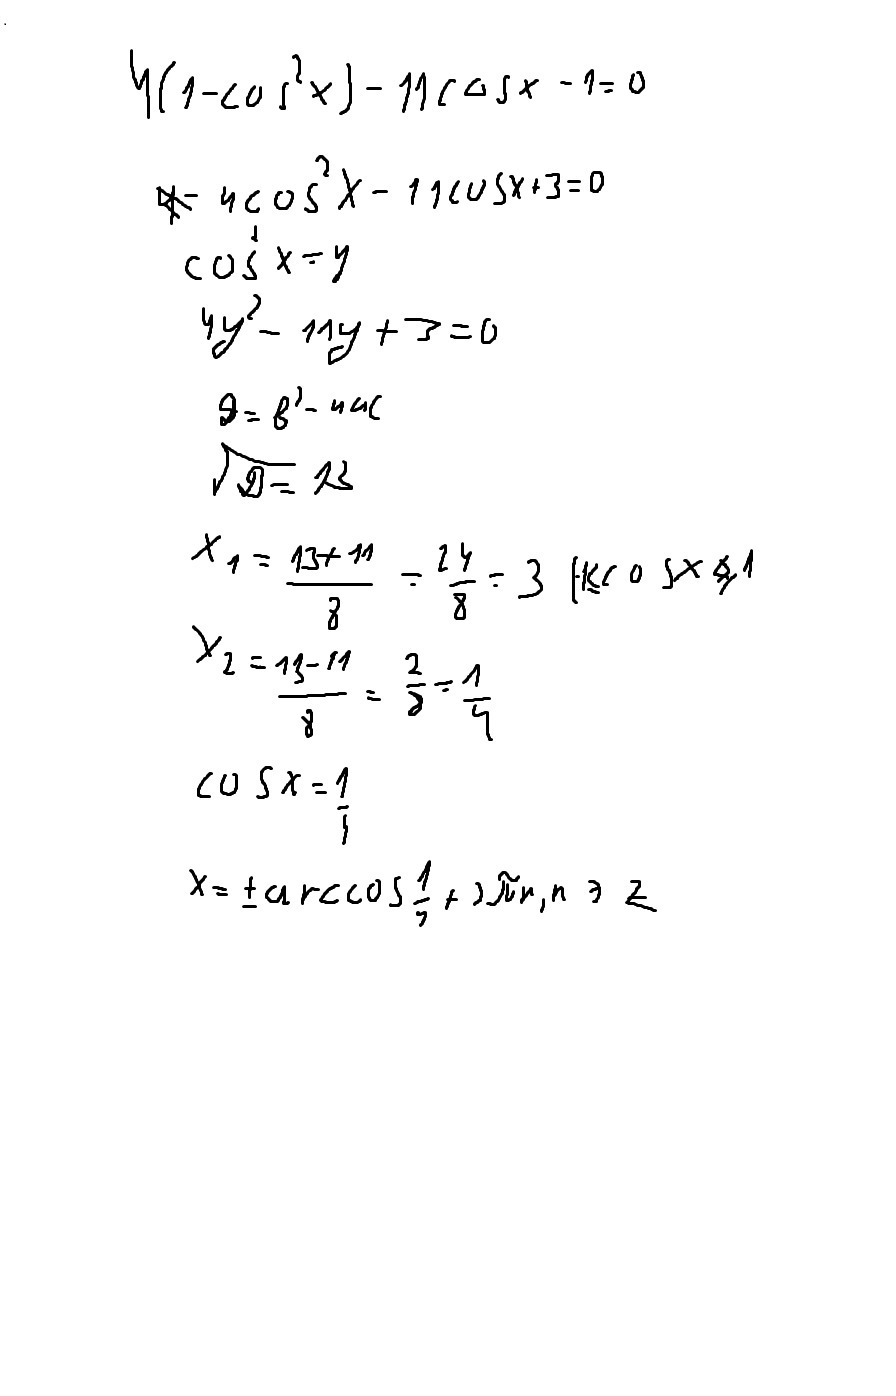 4(1-cos²x)-11cosx-1=0
-4cos²x-11cosx+3=0
cosx=y
4y²-11y+3=0
D=b²-4ac
√D=13
x₁=13+11/8=24/8=3 cosx 1
x₂=13-11/8=2/8=1/4
cosx=1/
x=±arccos1/+2πn,n∋Z